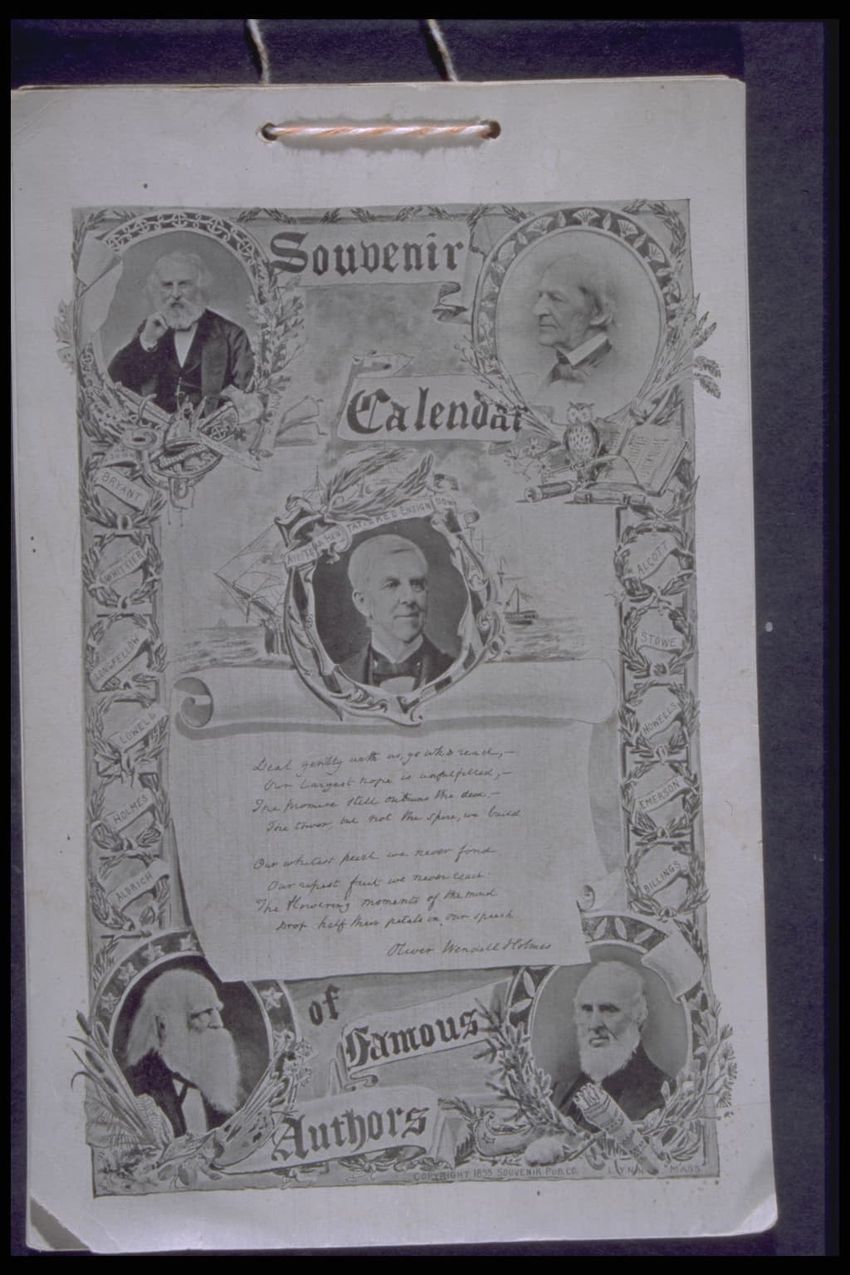 Souvenir
Calendar
BRYANT
WHITTIER
LONGFELLOW
LOWELL
HOLMES
ALDRICH
TATTERED ENSIGN DOWN
ALCOTT
STOWE
HOWELLS
EMERSON
BILLINGS
Deal gently with us, ye who read,—
Our largest hope is unfulfilled,—
The promise still outruns the deed,—
The tower, but not the spire, we build
Our whitest pearl we never find
Our ripest fruit we never reach
The flowering moments of the mind
Drop half their petals in our speech
Oliver Wendell Holmes
of
Famous
Authors
COPYRIGHT SOUVENIR PUB. CO. LYNN MASS